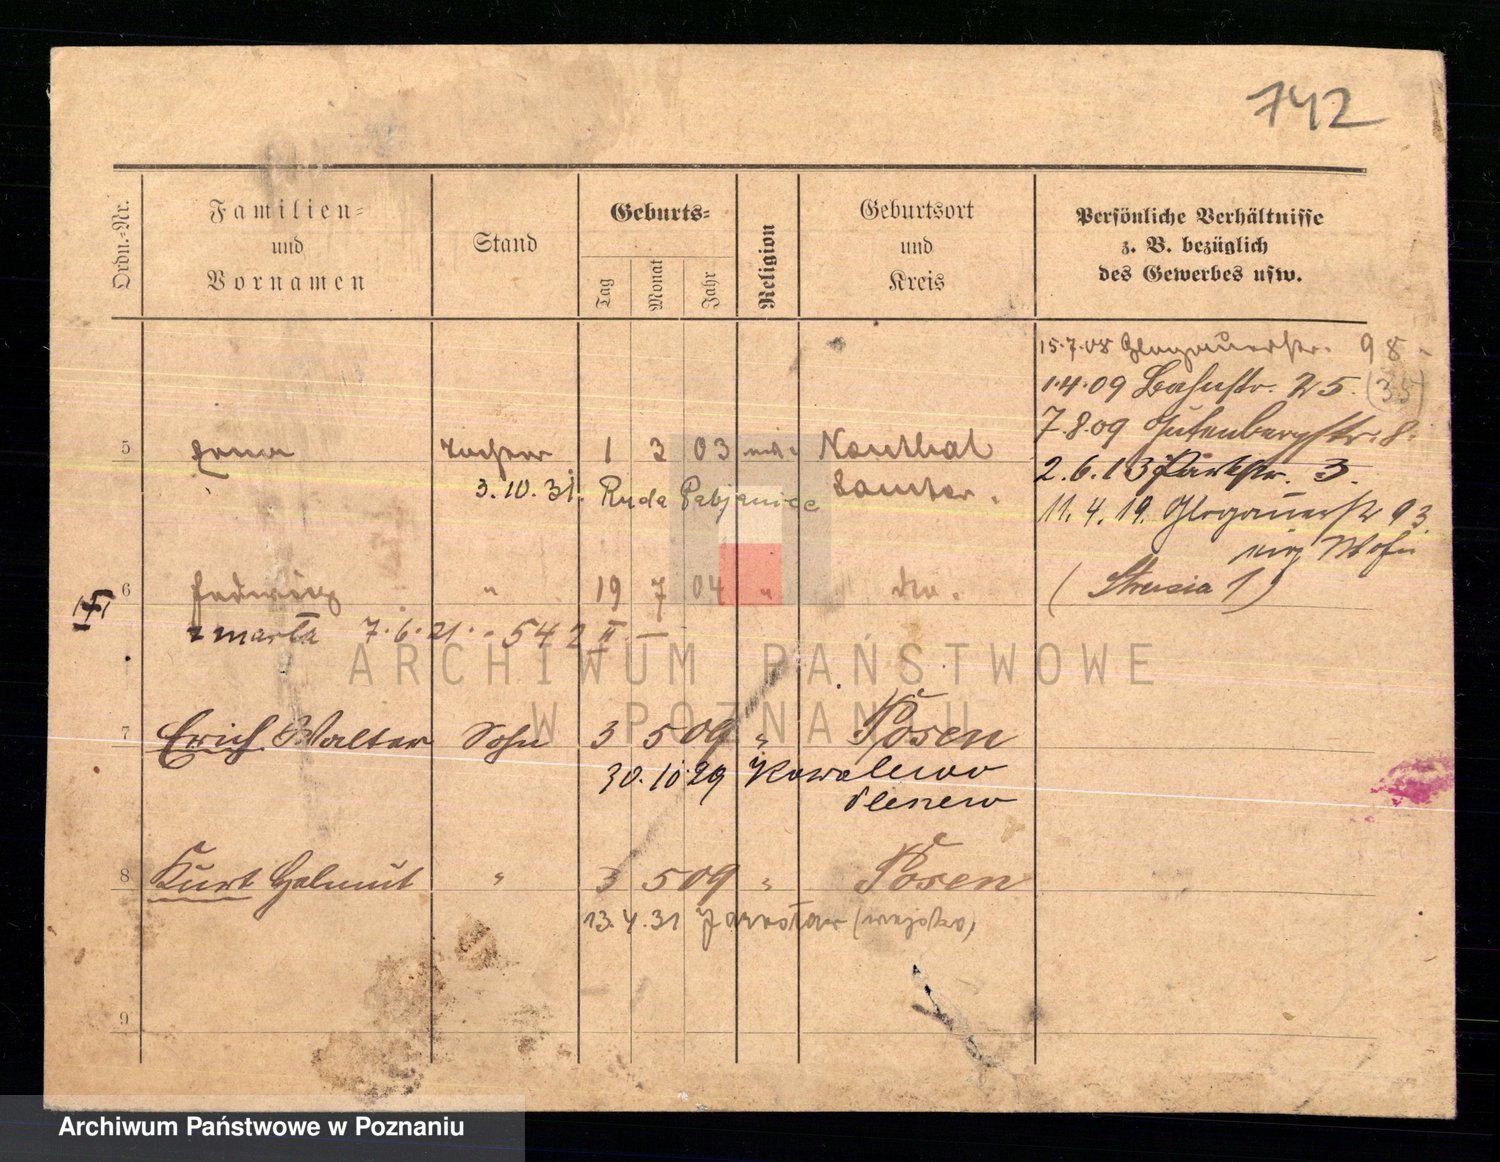 742
Ordn.-Nr.
Familien-
und
Vornamen
Stand
Geburts-
Tag
Monat
Jahr
Religion
Geburtsort
und
Kreis
Persönliche Verhältnisse
z. B. bezüglich
des Gewerbes usw.
15.7.08 Glogauerstr. 98
1.4.09 Bahnstr. 25. (35)
7.8.09 Gutenbergstr. 8.
2.6.13 Parkstr. 3.
11.4.19. Glogauerstr 93
(Strusia 1)
5 Erna Tochter 1 3 03 Samter.
3.10.31. Ruda Pabjanice
6 Hedwig " 19 7 04 "
zmarła 7.6.21. - 542 II
7 Erich Walter Sohn 3 5 09 " Posen
30.10.29 Kowalewo
Plenew
8 Kurt Helmut " 3 5 09 " Posen
13.4.31 Jarosław (wojsko)
9
ARCHIWUM PAŃSTWOWE
W POZNANIU
Archiwum Państwowe w Poznaniu